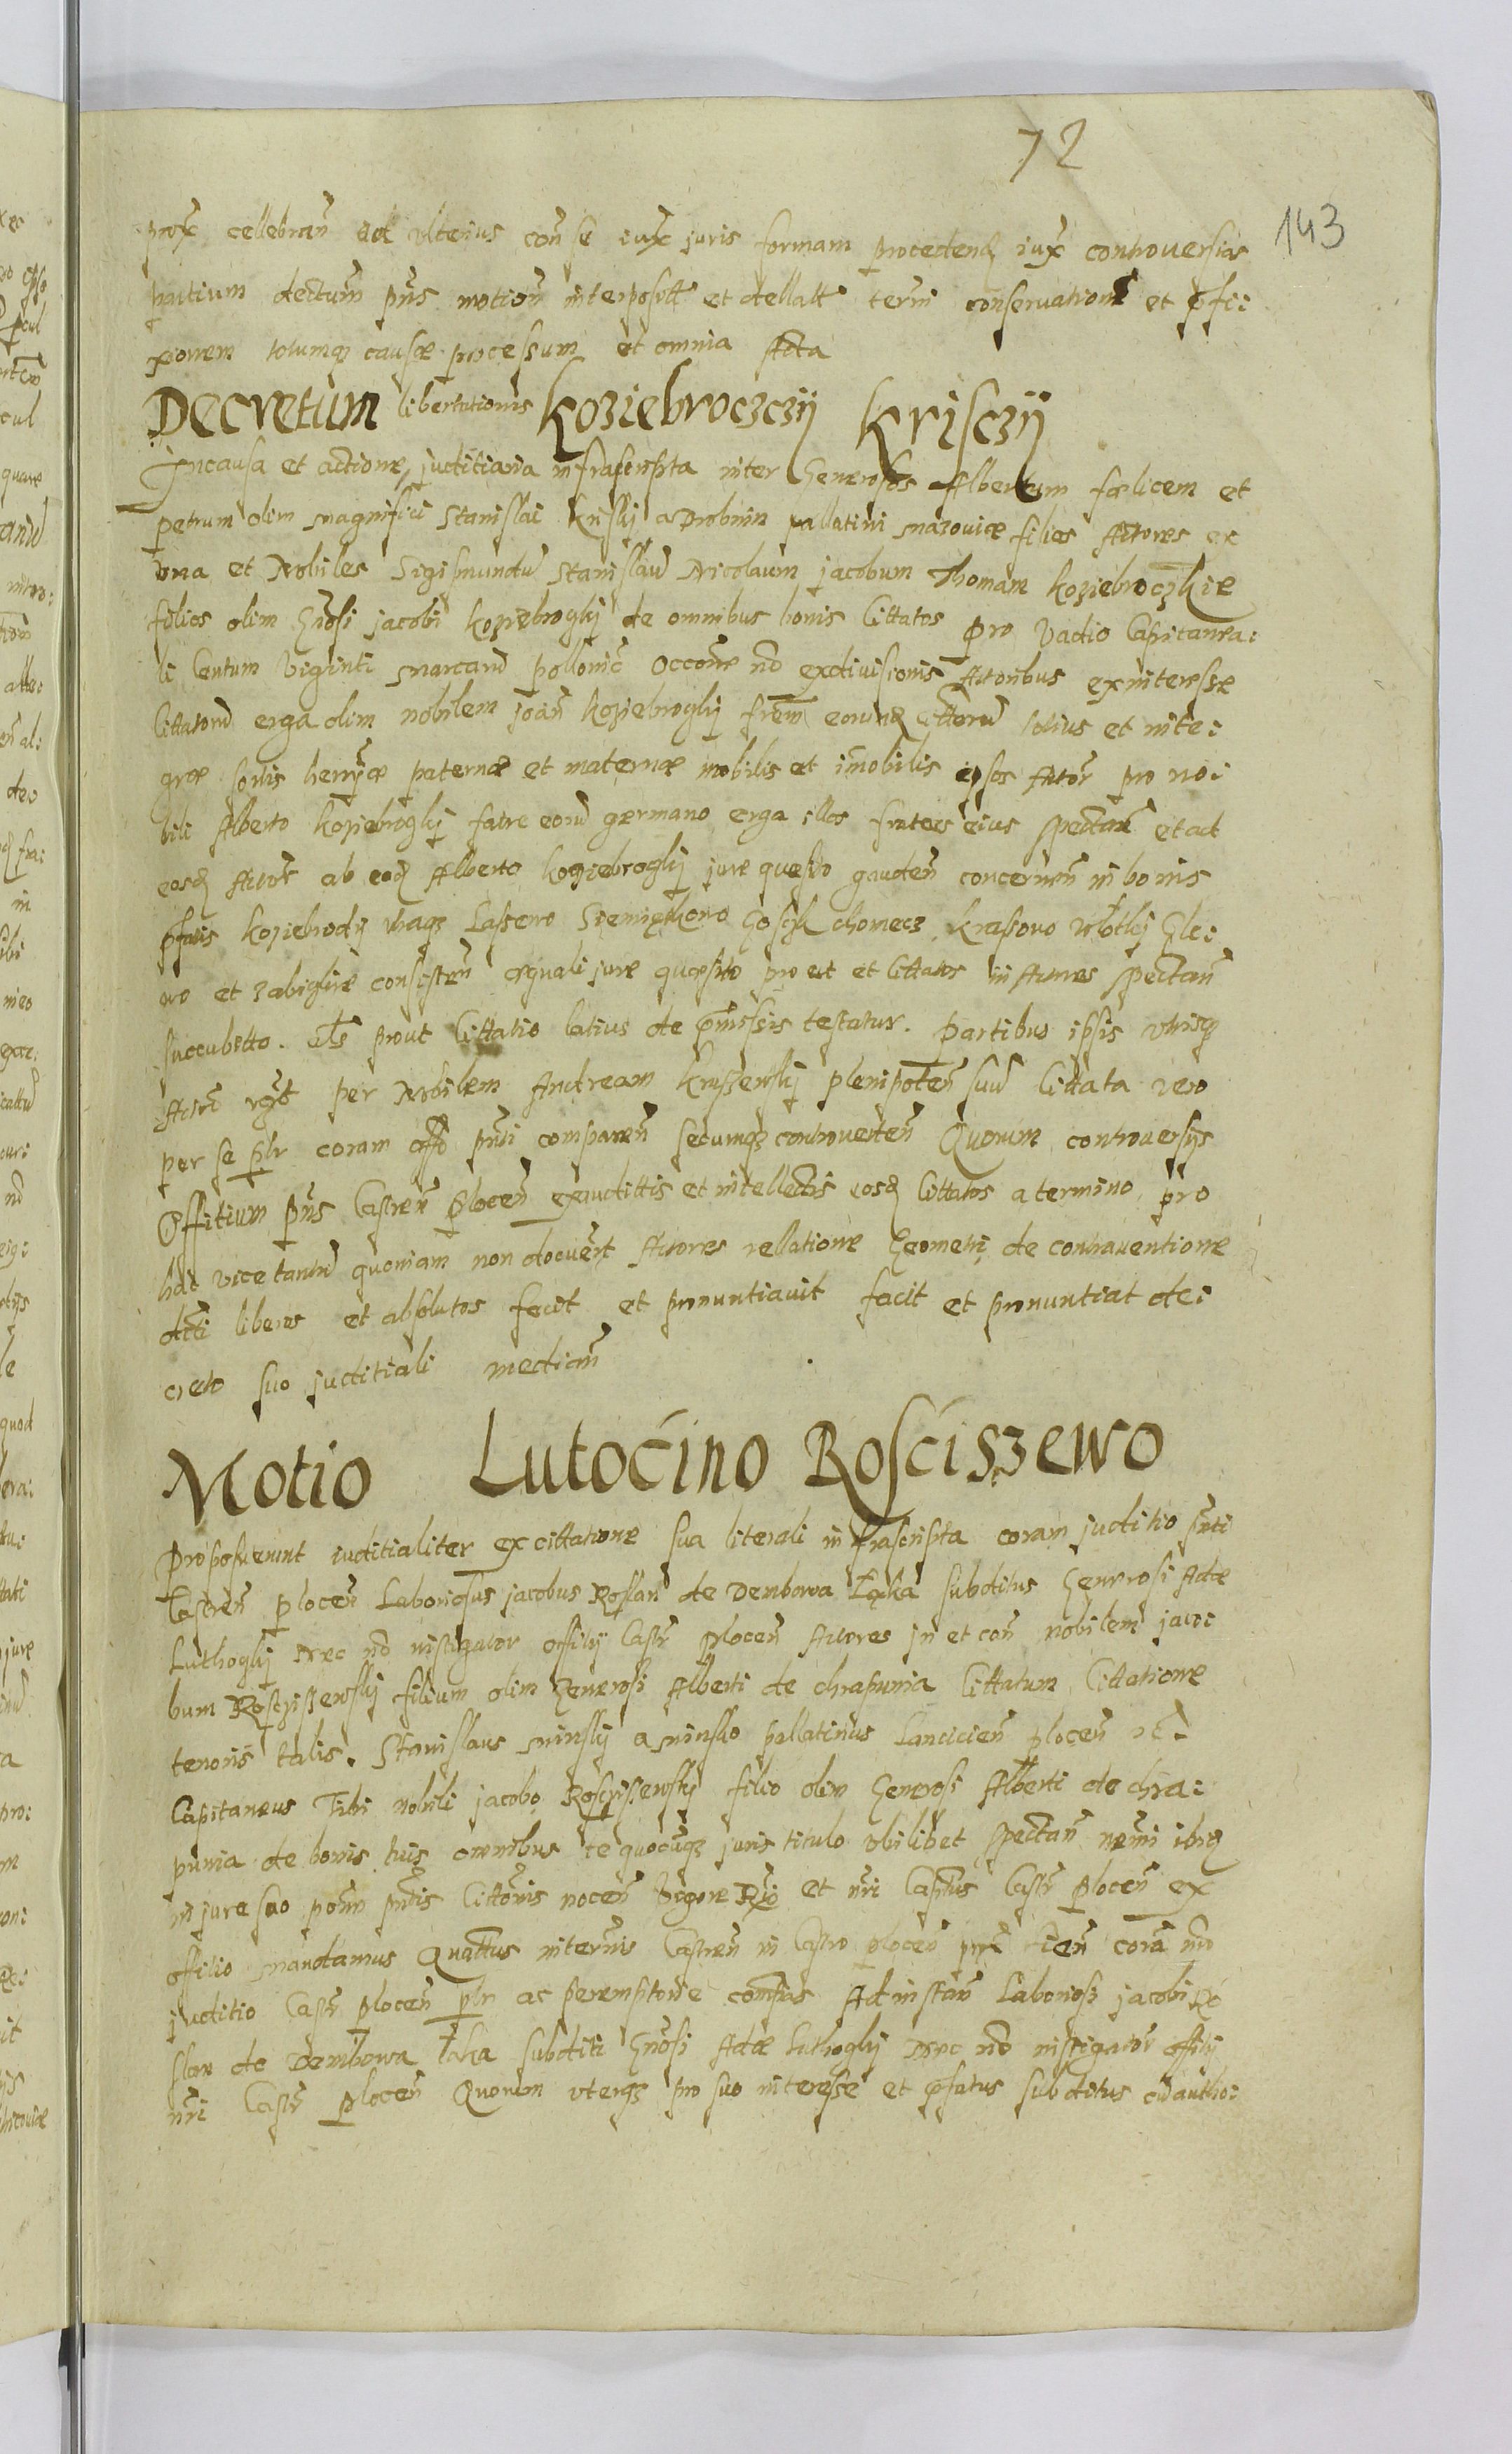 72
143
prox̃ cellebrañ ad ulterius coñ se iux̃ juris formam procedend iux̃ controversias
partium dectum pñs motioñ interposit̃ et dellat̃ termi conservationẽ et p̃fi:
xionem totumq causæ processum et omnia Acta
Decretum libertationis Koziebroczczij Krisczij
In causa et actione juditiaria infrascripta inter Generosos Albertum fœlicem et
petrum olim magnifici Stanislai Krislij a Drobnin pallatini mazoviæ filios Actores ex
una et Nobiles Sigismundũ Stanislaũ Nicolaum jacobum Thomam Koziebroczkie
filios olim Gñosi jacobi Koziebroglij de omnibus bonis Cittatos pro Vadio Capitanea:
li Centum Viginti marcarũ pollonic̃ Occone nõ exdivisionis Actoribus ex interesse
Cittatorũ erga olim nobilem joañ Koziebroglij frem eorund Cittorũ totius et inte:
græ sortis herrijæ paternæ et maternæ mobilis et imobilis ipsos Actor̃ pro no:
bili Alberto Koziebroglij fatre eorũ germano erga illos frates eius spectañ et ad
eosd Actor̃ ab eod Alberto Koziebroglij jure questo gaudeñ concerneñ in bonis
p̃fatis Koziebrody Lassewo Siemiękowo chomecz Krassowo Gle:
wo et zabiglie consisteñ æquali jure quæsito pro ut et Cittatos in Actores spectañ
succubitto. als prout Cittatio latius de p̃missis testatur. Partibus ipsis utrisq
Actor̃ per Nobilem Andream Kraszewslij plenipoteñ suũ Cittata vero
per se p̃lr coram offo pñti compareñ secumq controverteñ Quorum controversijs
Offitium pñs Castreñ Ploceñ exaudittis et intellectis eosd Cittatos a termino pro
hac vice tantũ quoniam non docuert Actores rellatione Geometri de contraventione
dicti liberos et absolutos fecit et pronuntiavit facit et pronuntiat de:
creto suo juditiali mediañ
Motio Lutoćino Rosćiszewo
Proposuerunt iuditialiter ex cittatione sua literali infrascripta coram juditio pñti
Castreñ ploceñ Laboriosus jacobus Roslan de Dembowa Łąka subditus Generosi Adæ
Luthoglij Nec nõ instigator offitij Castr̃ Ploceñ Actores in et coñ nobilem jaco:
bum Rosczissewslij filium olim Generosi Alberti de chrapunia Cittatum Cittatione
tenoris talis. Stanislaus minslij a minsko pallatinus Lancicieñ ploceñ
Capitaneus Tibi nobili jacobo Rosczissewslij filio olim Generosi Alberti de chra:
punia de bonis tuis omnibus te quocũq juris titulo ubilibet spectañ nemi ibid
in jure suo poñm pñtis Cittonis noceñ Vigore et nri Captus Castr̃ ploceñ ex
offitio mandamus Quattus in termis Castreñ in Castro ploceñ prox̃ fieñ corã nro
juditio Castr̃ ploceñ p̃lr ac peremptorie compas Ad instañ Laboriosi jacobi Ro
slan de Dembowa Łąka subditi Gñosi Adæ Luthoglij Nec nõ instigator̃ offitij
nri Castr̃ Ploceñ Quorum uterq pro suo interesse et p̃fatus subditus cũ autho: